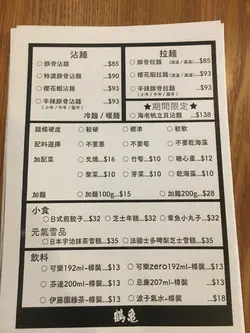 沾麵
○ 豚骨沾麵 ...$85
○ 特濃豚骨沾麵 ...$93
○ 櫻花蝦沾麵 ...$93
○ 辛辣豚骨沾麵 ...$93
(小辛/中辛/激辛)
冷麵 / 暖麵
拉麵
○ 豚骨拉麵 ...$85
○ 櫻花蝦拉麵 ...$93
○ 辛辣豚骨拉麵 ...$93
(小辛/中辛/激辛)
★期間限定★
○ 海老帆立貝沾麵 ...$138
麵條硬度 ○ 較硬 ○ 標準 ○ 較軟
配料選擇 ○ 不要蔥 ○ 不要筍 ○ 不要乾海藻
加配菜 ○ 叉燒...$16 ○ 竹筍...$10 ○ 糖心蛋...$12
○ 紫菜...$10 ○ 芽菜...$10 ○ 乾海藻...$10
加麵 ○ 加麵100g...$15 ○ 加麵200g...$28
小食
○ 日式煎餃子...$32 ○ 芝士年糕...$32 ○ 章魚小丸子...$32
元氣雪品
○ 日本宇治抹茶雪糕...$35 ○ 法國士多啤梨芝士雪糕...$35
飲料
○ 可樂192ml-樽裝...$13 ○ 可樂zero192ml-樽裝...$13
○ 芬達200ml-樽裝...$13 ○ 忌廉207ml-樽裝...$13
○ 伊藤園綠茶-樽裝...$18 ○ 波子氣水-樽裝...$18
鶴亀